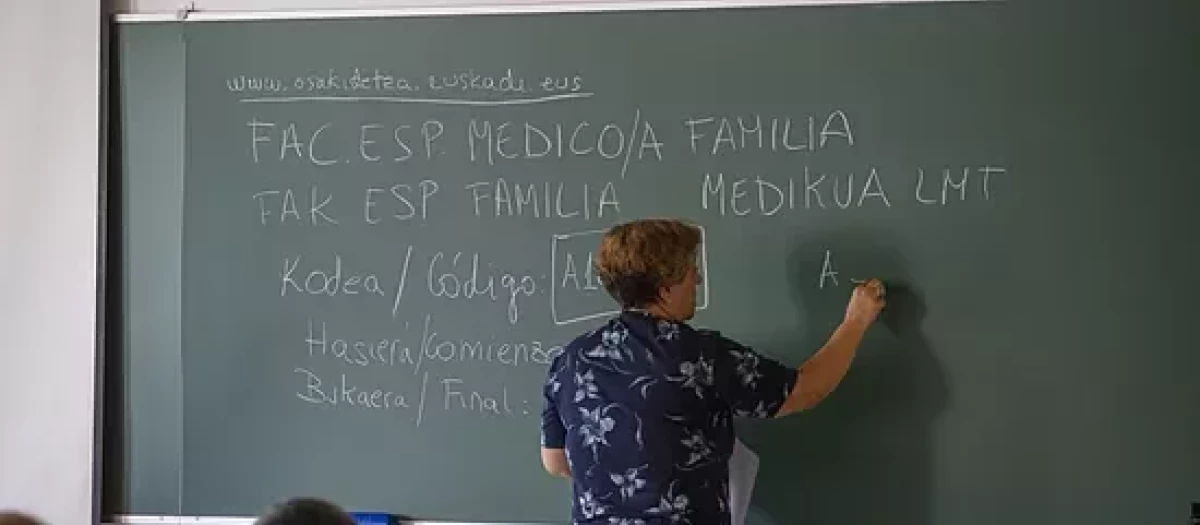 www.osakidetza.euskadi.eus
FAC. ESP. MEDICO/A FAMILIA
FAK ESP FAMILIA MEDIKUA LMT
Kodea / Código:
A
Hasiera/Comienzo
Bukaera/ Final: